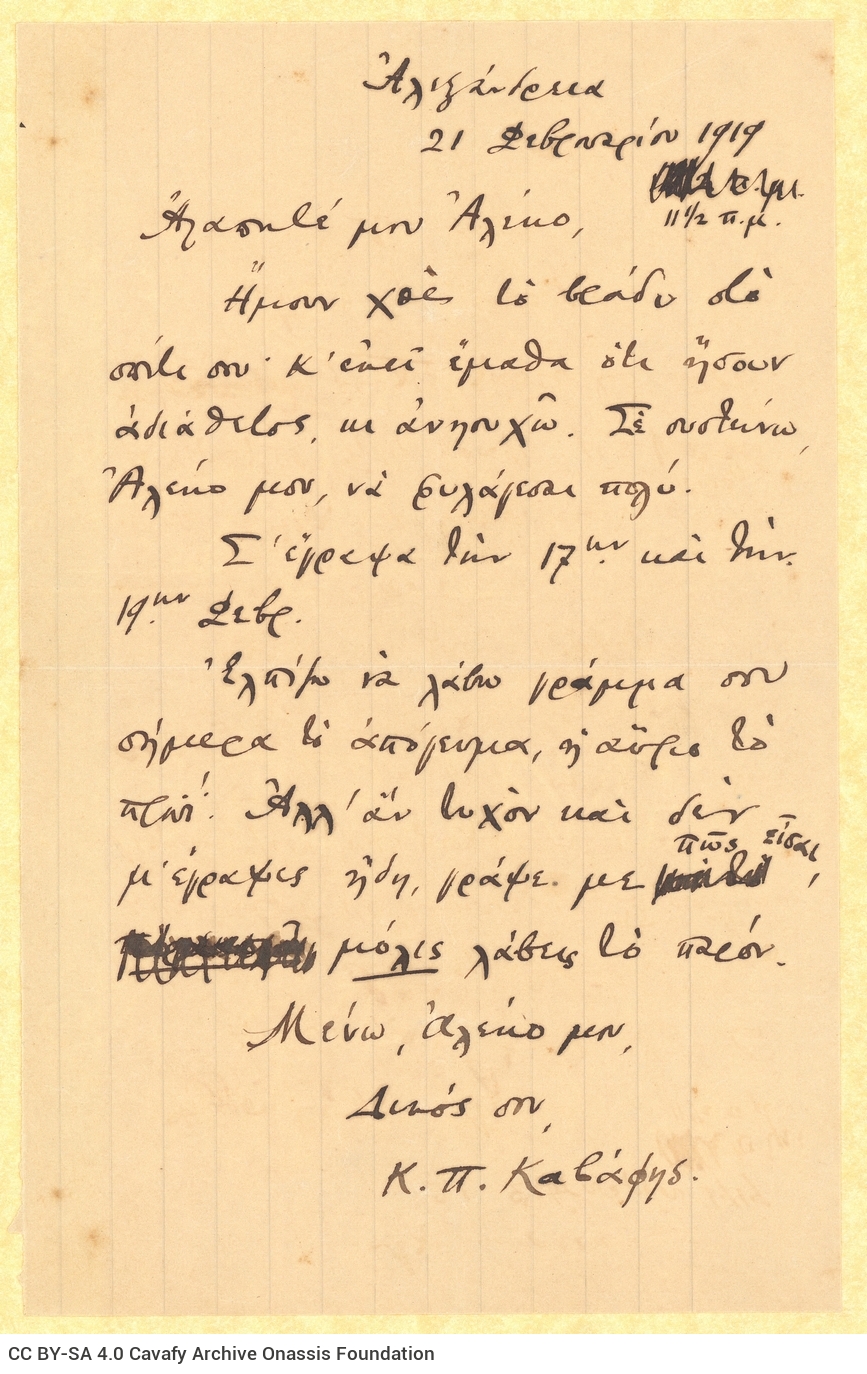 Ἀλεξάνδρεια
21 Φεβρουαρίου 1919
11 1/2 π.μ.
Ἀγαπητέ μου Ἀλέκο,
Ἤμουν χθὲς τὸ βράδυ στὸ
σπίτι σου· κ' ἐκεῖ ἔμαθα ὅτι ἤσουν
ἀδιάθετος, κι ἀνησυχῶ. Σὲ συστήνω,
Ἀλέκο μου, νὰ φυλάγεσαι πολύ.
Σ' ἔγραψα τὴν 17ην καὶ τὴν
19ην Φεβρ.
Ἐλπίζω νὰ λάβω γράμμα σου
σήμερα τὸ ἀπόγευμα, ἢ αὔριο τὸ
πρωΐ. Ἀλλ' ἂν τυχὸν καὶ δὲν
μ' ἔγραψες ἤδη, γράψε με πῶς εἶσαι,
μόλις λάβεις τὸ παρόν.
Μένω, Ἀλέκο μου,
Δικός σου,
Κ. Π. Καβάφης.
CC BY-SA 4.0 Cavafy Archive Onassis Foundation